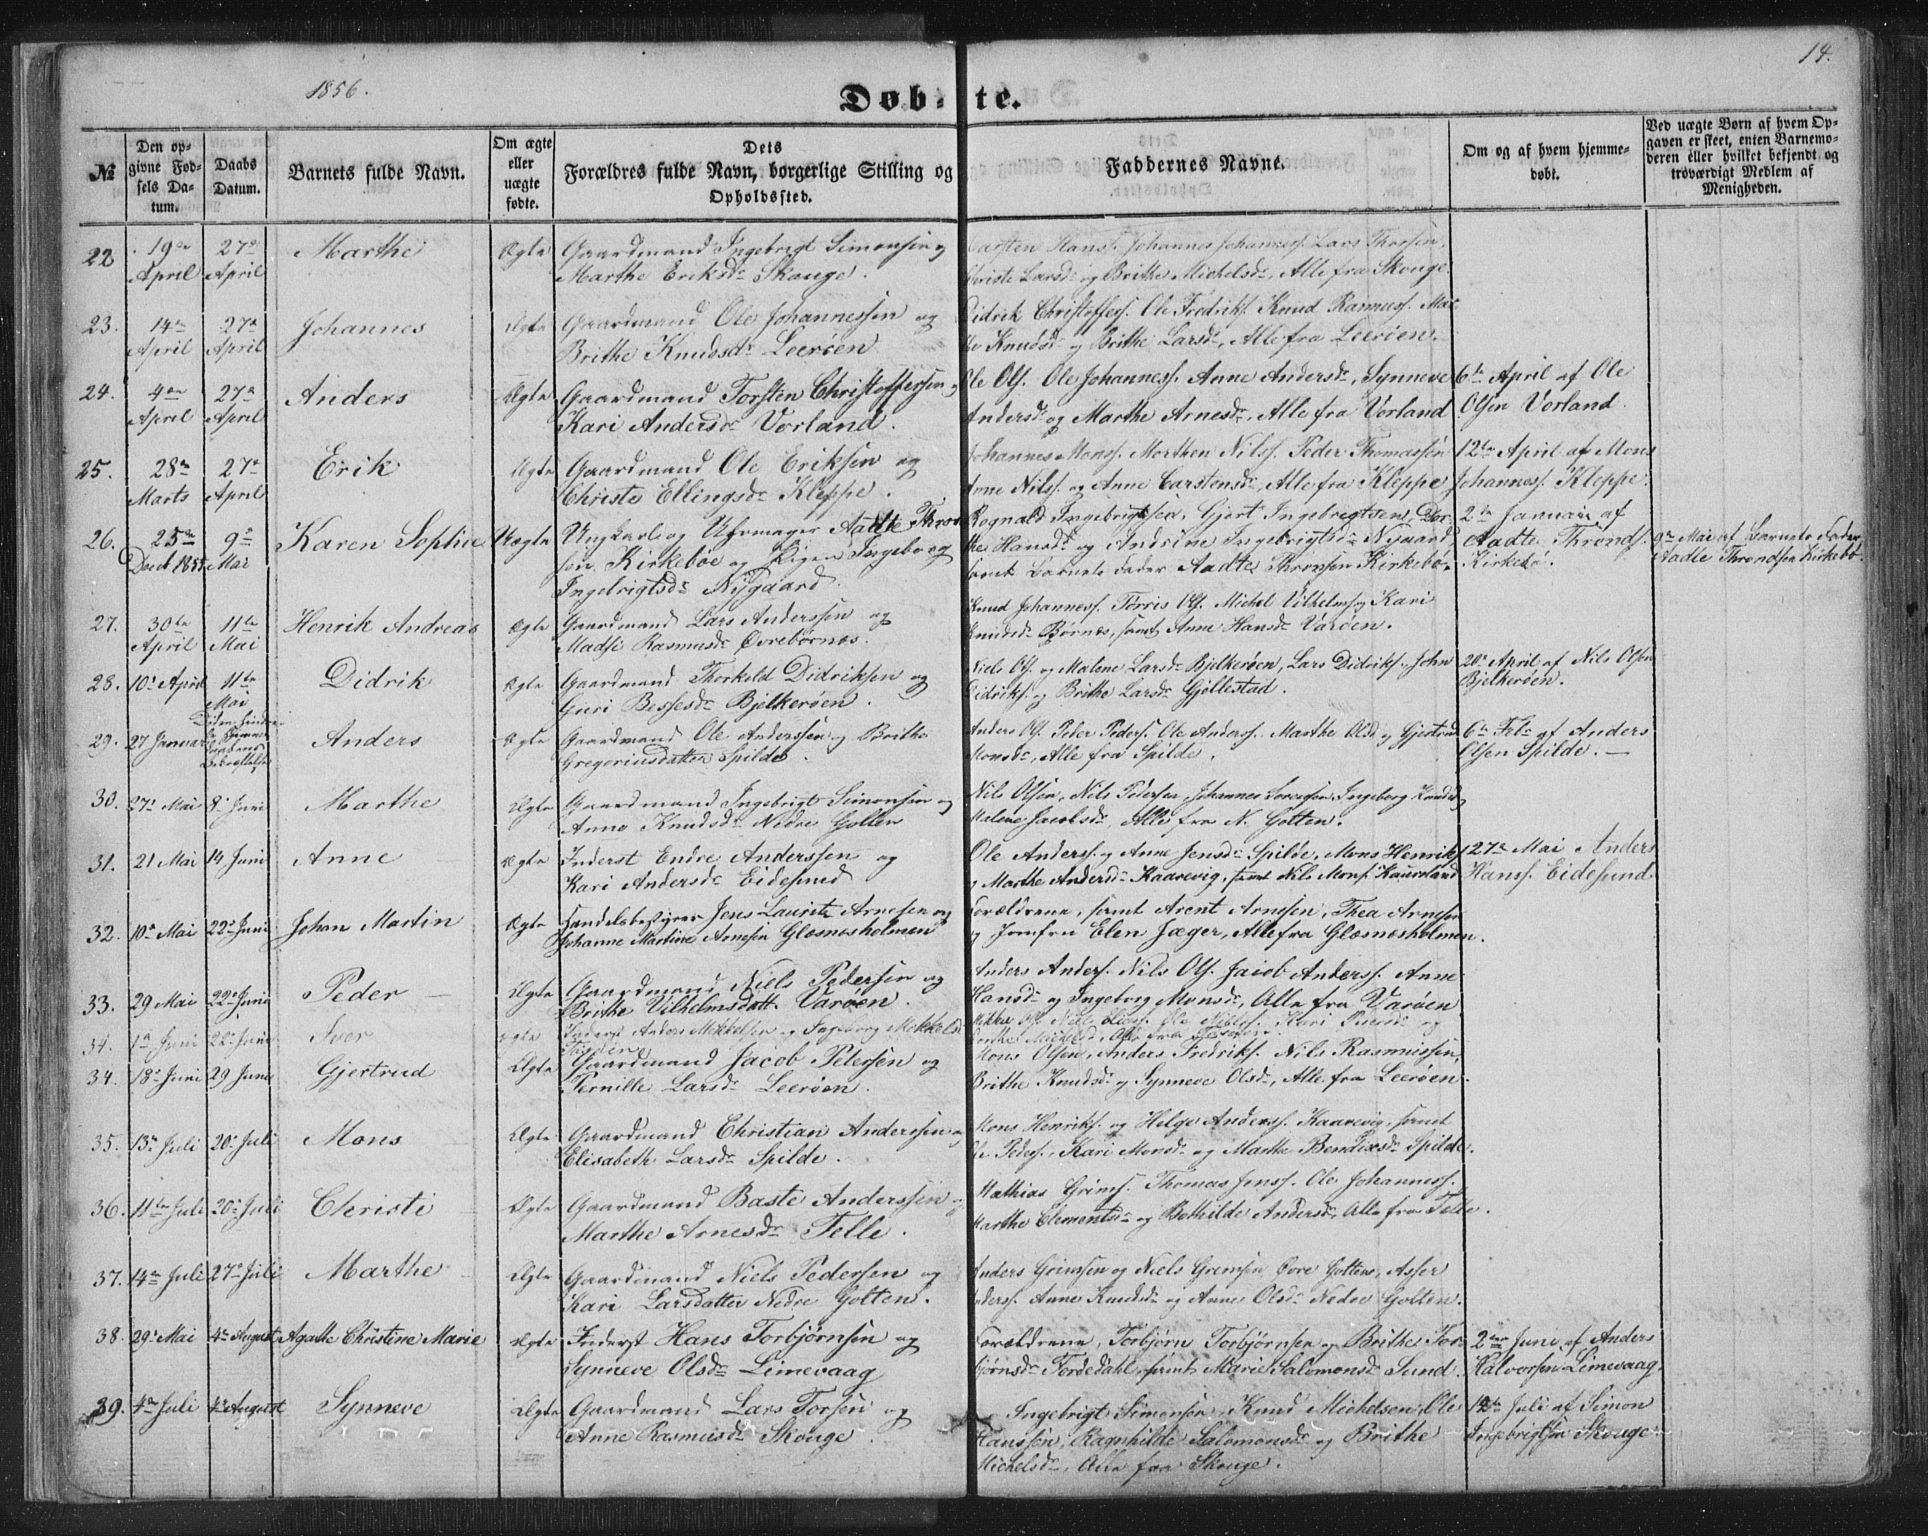 1856.
14.
Døbte.
№ | Den opgivne Fødsels Datum. | Daabs Datum. | Barnets fulde Navn. | Om ægte eller uægte fødte. | Dets Forældres fulde Navn, borgerlige Stilling og Opholdssted. | Faddernes Navne. | Om og af hvem hjemmedøbt. | Ved uægte Børn af hvem Opgaven er skeet, enten Barnemoderen eller hvilket bekjendt og troværdigt Medlem af Menigheden.
22 19de April 27de April Marthe Ægte Gaardmand Ingebrigt Simonsen og
Marthe Eriksdr Skouge.
Carsten Hanss. Johannes Johanness. Lars Thorsen,
Christe Larsdr og Brithe Michelsdr, Alle fra Skouge
23. 14de April 27de April Johannes Ægte Gaardmand Ole Johannessen og
Brithe Knudsdr Leerøen
Didrik Christoffers. Ole Fredriks. Knud Rasmuss. Mar
the Knudsdr og Brithe Larsdr, Alle fra Leerøen.
24. 4de April 27de April Anders Ægte Gaardmand Torsten Christoffersen og
Kari Andersdr Vorland.
Ole Ols. Ole Johanness. Anne Andersdr, Synneve
Andersdr og Marthe Arnesdr, Alle fra Vorland
6te April af Ole
Olsen Vorland.
25. 28de Marts 27de April Erik Ægte Gaardmand Ole Eriksen og
Christe Ellingsdr Kleppe.
Johannes Monss. Morthen Nilss. Peder Thomassen
Arne Nilss. og Anne Carstensdr, Alle fra Kleppe
12te April af Mons
Johanness. Kleppe.
26. 25de Decb 1855 9de Mai Karen Sophie Uægte Ungkarl og Uhrmager Aadte Thron
sen Kirkebøe og Pigen Ingeborg
Ingebrigtsdr Nygaard.
Rognald Ingebrigtsen, Gjert Ingebrigtsen, Dor-
the Hansdr og Andrine Ingebrigtsdr Nygaard
samt Barnets Fader Aadte Thronsen Kirkebø.
2de Januar af
Aadte Thronds.
Kirkebø.
9de Mai af Barnets Fader
Aadte Throndsen Kirkebø.
27. 30te April 11te Mai Henrik Andreas Ægte Gaardmand Lars Anderssen og
Madsi Rasmusdr Øvrebørnes.
Knud Johanness. Torris Ols. Michel Vilhelms og Kari
Knudsdr Børnes, samt Anne Hansdr Varøen.
28. 10de April 11te Mai Didrik Ægte Gaardmand Thorkild Didriksen og
Guri Bessesdr Bjelkerøen.
Niels Ols. og Malene Larsdr Bjelkerøen, Lars Didriks. John
Didriks. og Brithe Larsdr Gjøllestad.
20de April af Nils Olsen
Bjelkerøen.
29. 27 Januar Anders Ægte Gaardmand Ole Anderssen og Brithe
Gregoriusdatter Spilde.
Anders Ols. Peder Peders. Ole Anderss. Marthe Olsdr og Gjertrud
Monsdr, Alle fra Spilde.
6te Febr af Anders
Olsen Spilde. —
30. 27de Mai 8de Juni Marthe Ægte Gaardmand Ingebrigt Simonsen og
Anne Knudsdr Nedre Golten
Nils Olsen, Nils Pedersen, Johannes Sørensen, Ingeborg Knudsdr
Malene Jacobsdr, Alle fra N. Golten.
31. 21 Mai 14 Juni Anne Ægte Inderst Endre Anderssen og
Kari Andersdr Eidesund
Ole Anderss. og Anne Jensdr Spilde, Mons Henriks.
og Marthe Andersdr Kaarevig, samt Nils Mons. Kaursland
27de Mai Anders
Hanss. Eidesund.
32. 10de Mai 22de Juni Johan Martin Ægte Handelsbestyrer Jens Lauritz Arnesen og
Johanne Martine Arnesen Glesnesholmen
Forældrene, samt Arent Arnesen, Thea Arnesen
og Jomfru Elen Jæger, Alle fra Glesnesholmen.
33. 29 Mai 22de Juni Peder Ægte Gaardmand Niels Pedersen og
Brithe Vilhelmsdatt. Varøen.
Anders Anders. Nils Ols. Jacob Anderss. Anne
Hansdr og Ingeborg Monsdr, Alle fra Varøen
34. 1de Juni 22de Juni Iver Ægte Inderst Anders Mikkelsen og Ingeborg Mikkelsdr
34. 18de Juni 29 Juni Gjertrud Ægte Gaardmand Jacob Petersen og
Pernille Larsdr Leerøen.
Mons Olsen, Anders Fredriks. Nils Rasmussen,
Brithe Knudsdr og Synneve Olsdr, Alle fra Leerøen.
35. 13de Juli 20de Juli Mons Ægte Gaardmand Christian Anderssen og
Elisabeth Larsdr Spilde.
Mons Henriks. og Helge Anderss. Kaarevig, samt
Ole Peders. Kari Monsdr og Marthe Bendixsdr Spilde.
36. 11te Juli 20de Juli Christi Ægte Gaardmand Baste Anderssen og
Marthe Arnesdr Telle.
Mathias Grims. Thomas Jenss. Ole Johanness.
Marthe Clementsdr og Bothilde Andersdr, Alle fra Telle.
37. 14de Juli 27de Juli Marthe Ægte Gaardmand Niels Pedersen og
Kari Larsdatter Nedre Golten.
Anders Grimsen og Niels Grimsen Øvre Golten, Asser
Anderss. Anne Knudsdr og Anne Olsdr Nedre Golten.
38. 29de Mai 4de August Agathe Christine Marie Ægte Inderst Hans Torbjørnsen og
Synneve Olsdr Limevaag
Forældrene, Torbjørn Torbjørnsen og Brithe Tor-
bjørnsdr Tordedahl, samt Marie Salomonsdr Sund.
2den Juni af Anders
Halvorsen Limevaag.
39. 4de Juli 4de August Synneve Ægte Gaardmand Lars Torsen og
Anne Rasmusdr Skouge.
Ingebrigt Simonsen, Knud Michelsen, Ole
Hanssen, Ragnhilde Salomonsdr og Brithe
Michelsdr, Alle fra Skouge.
12te Juli af Simon
Ingebrigtsen Skouge.